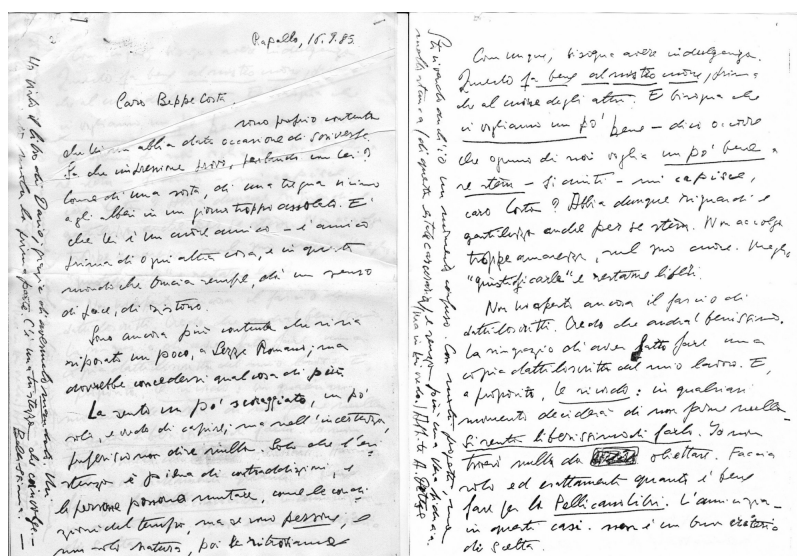 Rapallo, 16.9.85.
Caro Beppe Costa.
sono proprio contenta
che lei mi abbia dato occasione di scriverle.
Sa che impressione provo, parlando con lei?
Come di una sosta, di una tregua vicino
agli alberi in un giorno troppo assolato. E'
che lei è un cuore amico – è amico
prima di ogni altra cosa, e in questo
mondo che brucia sempre, dà un senso
di pace, di ristoro.
Sono ancora più contenta che si sia
riposato un poco, a Sezze Romano; ma
dovrebbe concedersi qualcosa di più.
La sento un po' scoraggiato, un po'
solo, e credo di capire; ma nell'incertezza,
preferisco non dire nulla. Solo che l'esi
stenza è piena di contraddizioni, e
le persone possono mutare, come le condi
zioni del tempo, ma se sono persone, e
non solo natura, poi le ritroviamo
Ho visto il libro di Dario, prego di avermelo mandato. Un
la prima parte. C'è una tristezza che coinvolge –
Bellissima –
Comunque, bisogna avere indulgenza.
Questo fa bene al nostro cuore, prima
che al cuore degli altri. E bisogna che
ci vogliamo un po' bene – dico occorre
che ognuno di noi voglia un po' bene a
se stesso – si aiuti – mi capisce,
caro Costa? Abbia dunque riguardi e
gentilezza anche per se stesso. Non accolga
troppe amarezze, nel suo cuore. Meglio
"giustificarle" e restarne liberi.
Non ho aperto ancora il fascio di
dattiloscritti. Credo che andrà benissimo.
La ringrazio di aver fatto fare una
copia dattiloscritta del mio lavoro. E,
a proposito, le ricordo: in qualsiasi
momento deciderà di non farne nulla
si senta liberissimo di farlo. Io non
troverò nulla da obiettare. Faccia
solo ed esattamente quanto è bene
fare per la Pellicanolibri. L'amicizia –
in questi casi – non è un buon criterio
di scelta.
Sto vivendo anch'io un momento confuso. Con molti progetti, ma
molto stanca (di questa estate) e senza più una vera fiducia.